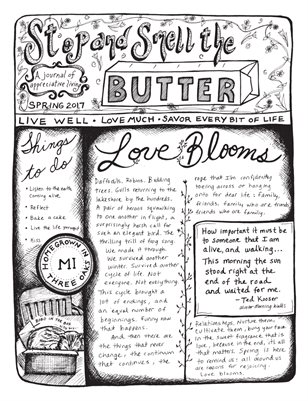 Stop and Smell the
BUTTER
A journal of
appreciative living
SPRING 2017
LIVE WELL • LOVE MUCH • SAVOR EVERY BIT OF LIFE
Things
to do
• Listen to the earth
coming alive.
• Reflect
• Bake a cake
• Live the life
• Kiss
HOMEGROWN IN
MI
THREE OAKS
Love Blooms
Daffodils. Robins. Budding
trees. Gulls returning to the
lakeshore by the hundreds.
A pair of herons squawking
to one another in flight, a
surprisingly harsh call for
such an elegant bird. The
thrilling trill of frog song.
We made it through.
We survived another
winter. Survived another
cycle of life. Not
everyone. Not everything.
This cycle brought a
lot of endings, and
an equal number of
beginnings. Funny how
that happens.
And then there are
the things that never
change, the continuum
that continues, the
rope that I'm confidently
toeing across or hanging
onto for dear life: family,
friends, family who are friends,
friends who are family.
How important it must be
to someone that I am
alive, and walking...
This morning the sun
stood right at the
end of the road
and waited for me.
- Ted Kooser
winter morning walks
Relationships. Nurture them,
cultivate them, bury your face
in the sweet fragrance that is
love, because in the end, it's all
that matters. Spring is here
to remind us: all around us
are reasons for rejoicing.
Love blooms.